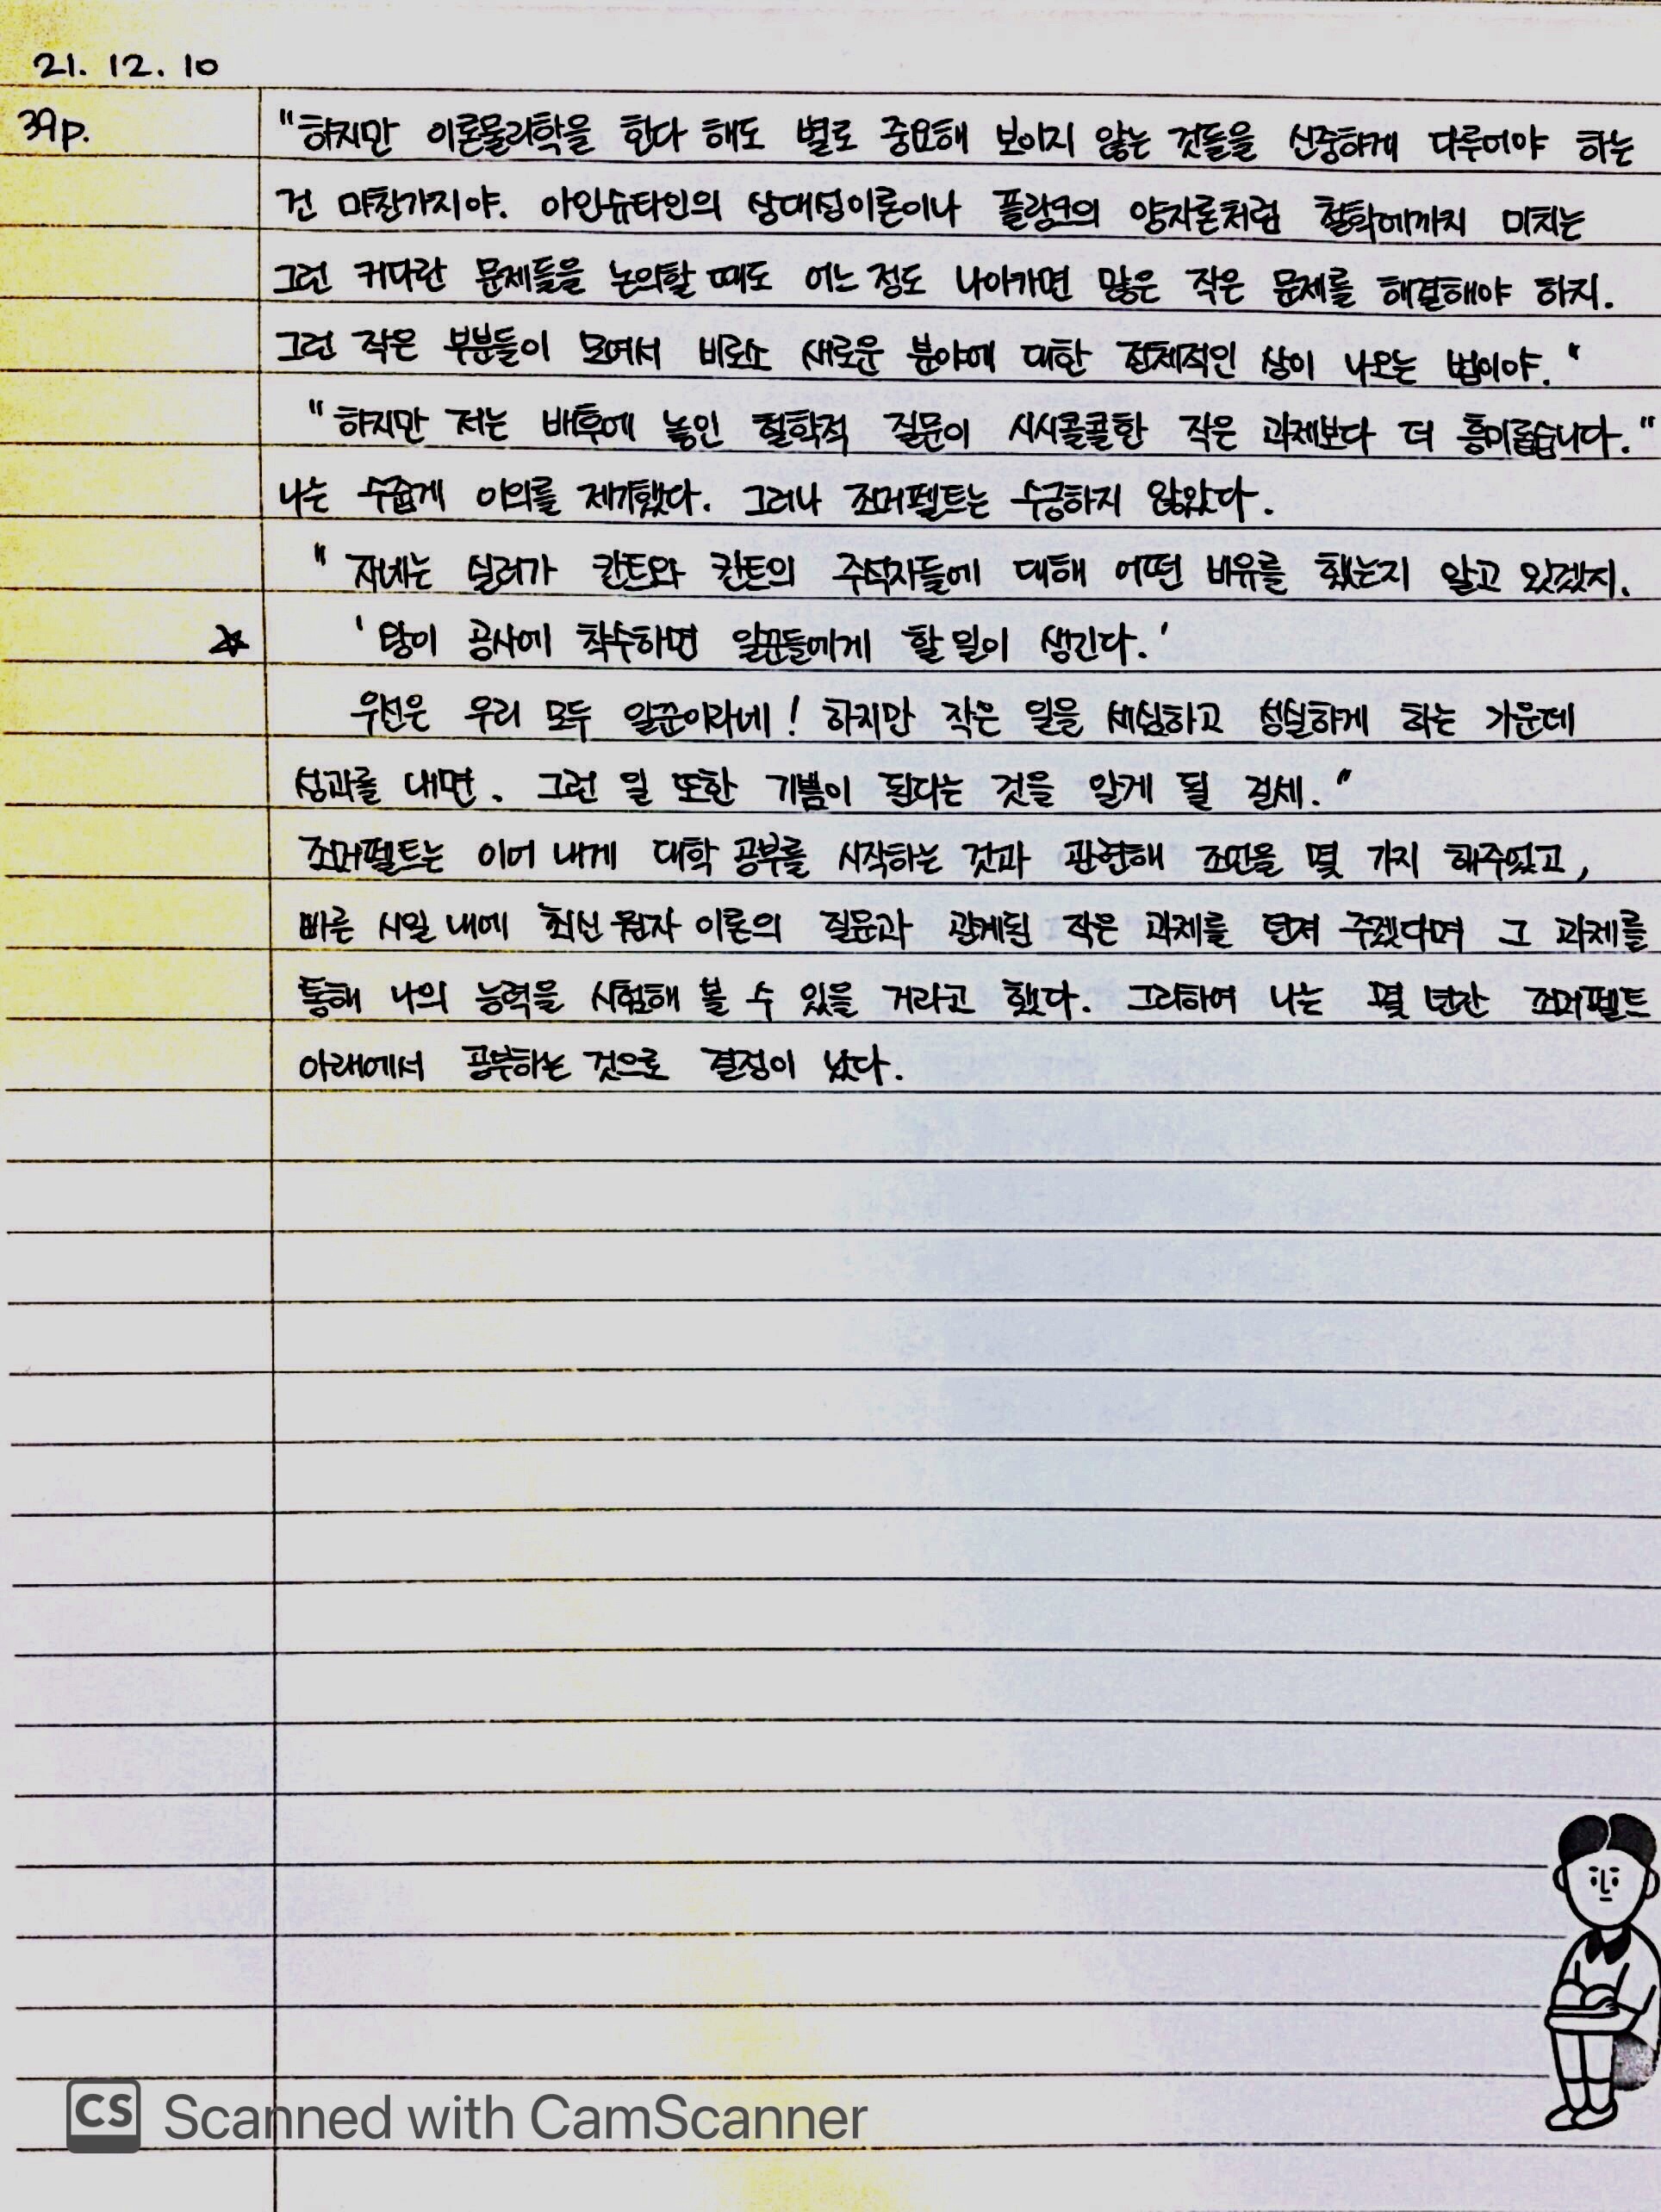 21. 12. 10
39p.
"하지만 이론물리학을 한다 해도 별로 중요해 보이지 않는 것들을 신중하게 다루어야 하는
건 마찬가지야. 아인슈타인의 상대성이론이나 플랑크의 양자론처럼 철학에까지 미치는
그런 커다란 문제들을 논의할 때도 어느 정도 나아가면 많은 작은 문제를 해결해야 하지.
그런 작은 부분들이 모여서 비로소 새로운 분야에 대한 전체적인 상이 나오는 법이야."
"하지만 저는 배후에 놓인 철학적 질문이 시시콜콜한 작은 과제보다 더 흥미롭습니다."
나는 수줍게 이의를 제기했다. 그러나 조머펠트는 수긍하지 않았다.
"자네는 실러가 칸트와 칸트의 주석자들에 대해 어떤 비유를 했는지 알고 있겠지.
☆ '왕이 공사에 착수하면 일꾼들에게 할 일이 생긴다.'
우선은 우리 모두 일꾼이라네! 하지만 작은 일을 세심하고 성실하게 하는 가운데
성과를 내면. 그런 일 또한 기쁨이 된다는 것을 알게 될 걸세."
조머펠트는 이어 내게 대학 공부를 시작하는 것과 관련해 조언을 몇 가지 해주었고,
빠른 시일 내에 최신 원자 이론의 질문과 관계된 작은 과제를 던져 주겠다며 그 과제를
통해 나의 능력을 시험해 볼 수 있을 거라고 했다. 그리하여 나는 몇 년간 조머펠트
아래에서 공부하는 것으로 결정이 났다.
CS Scanned with CamScanner